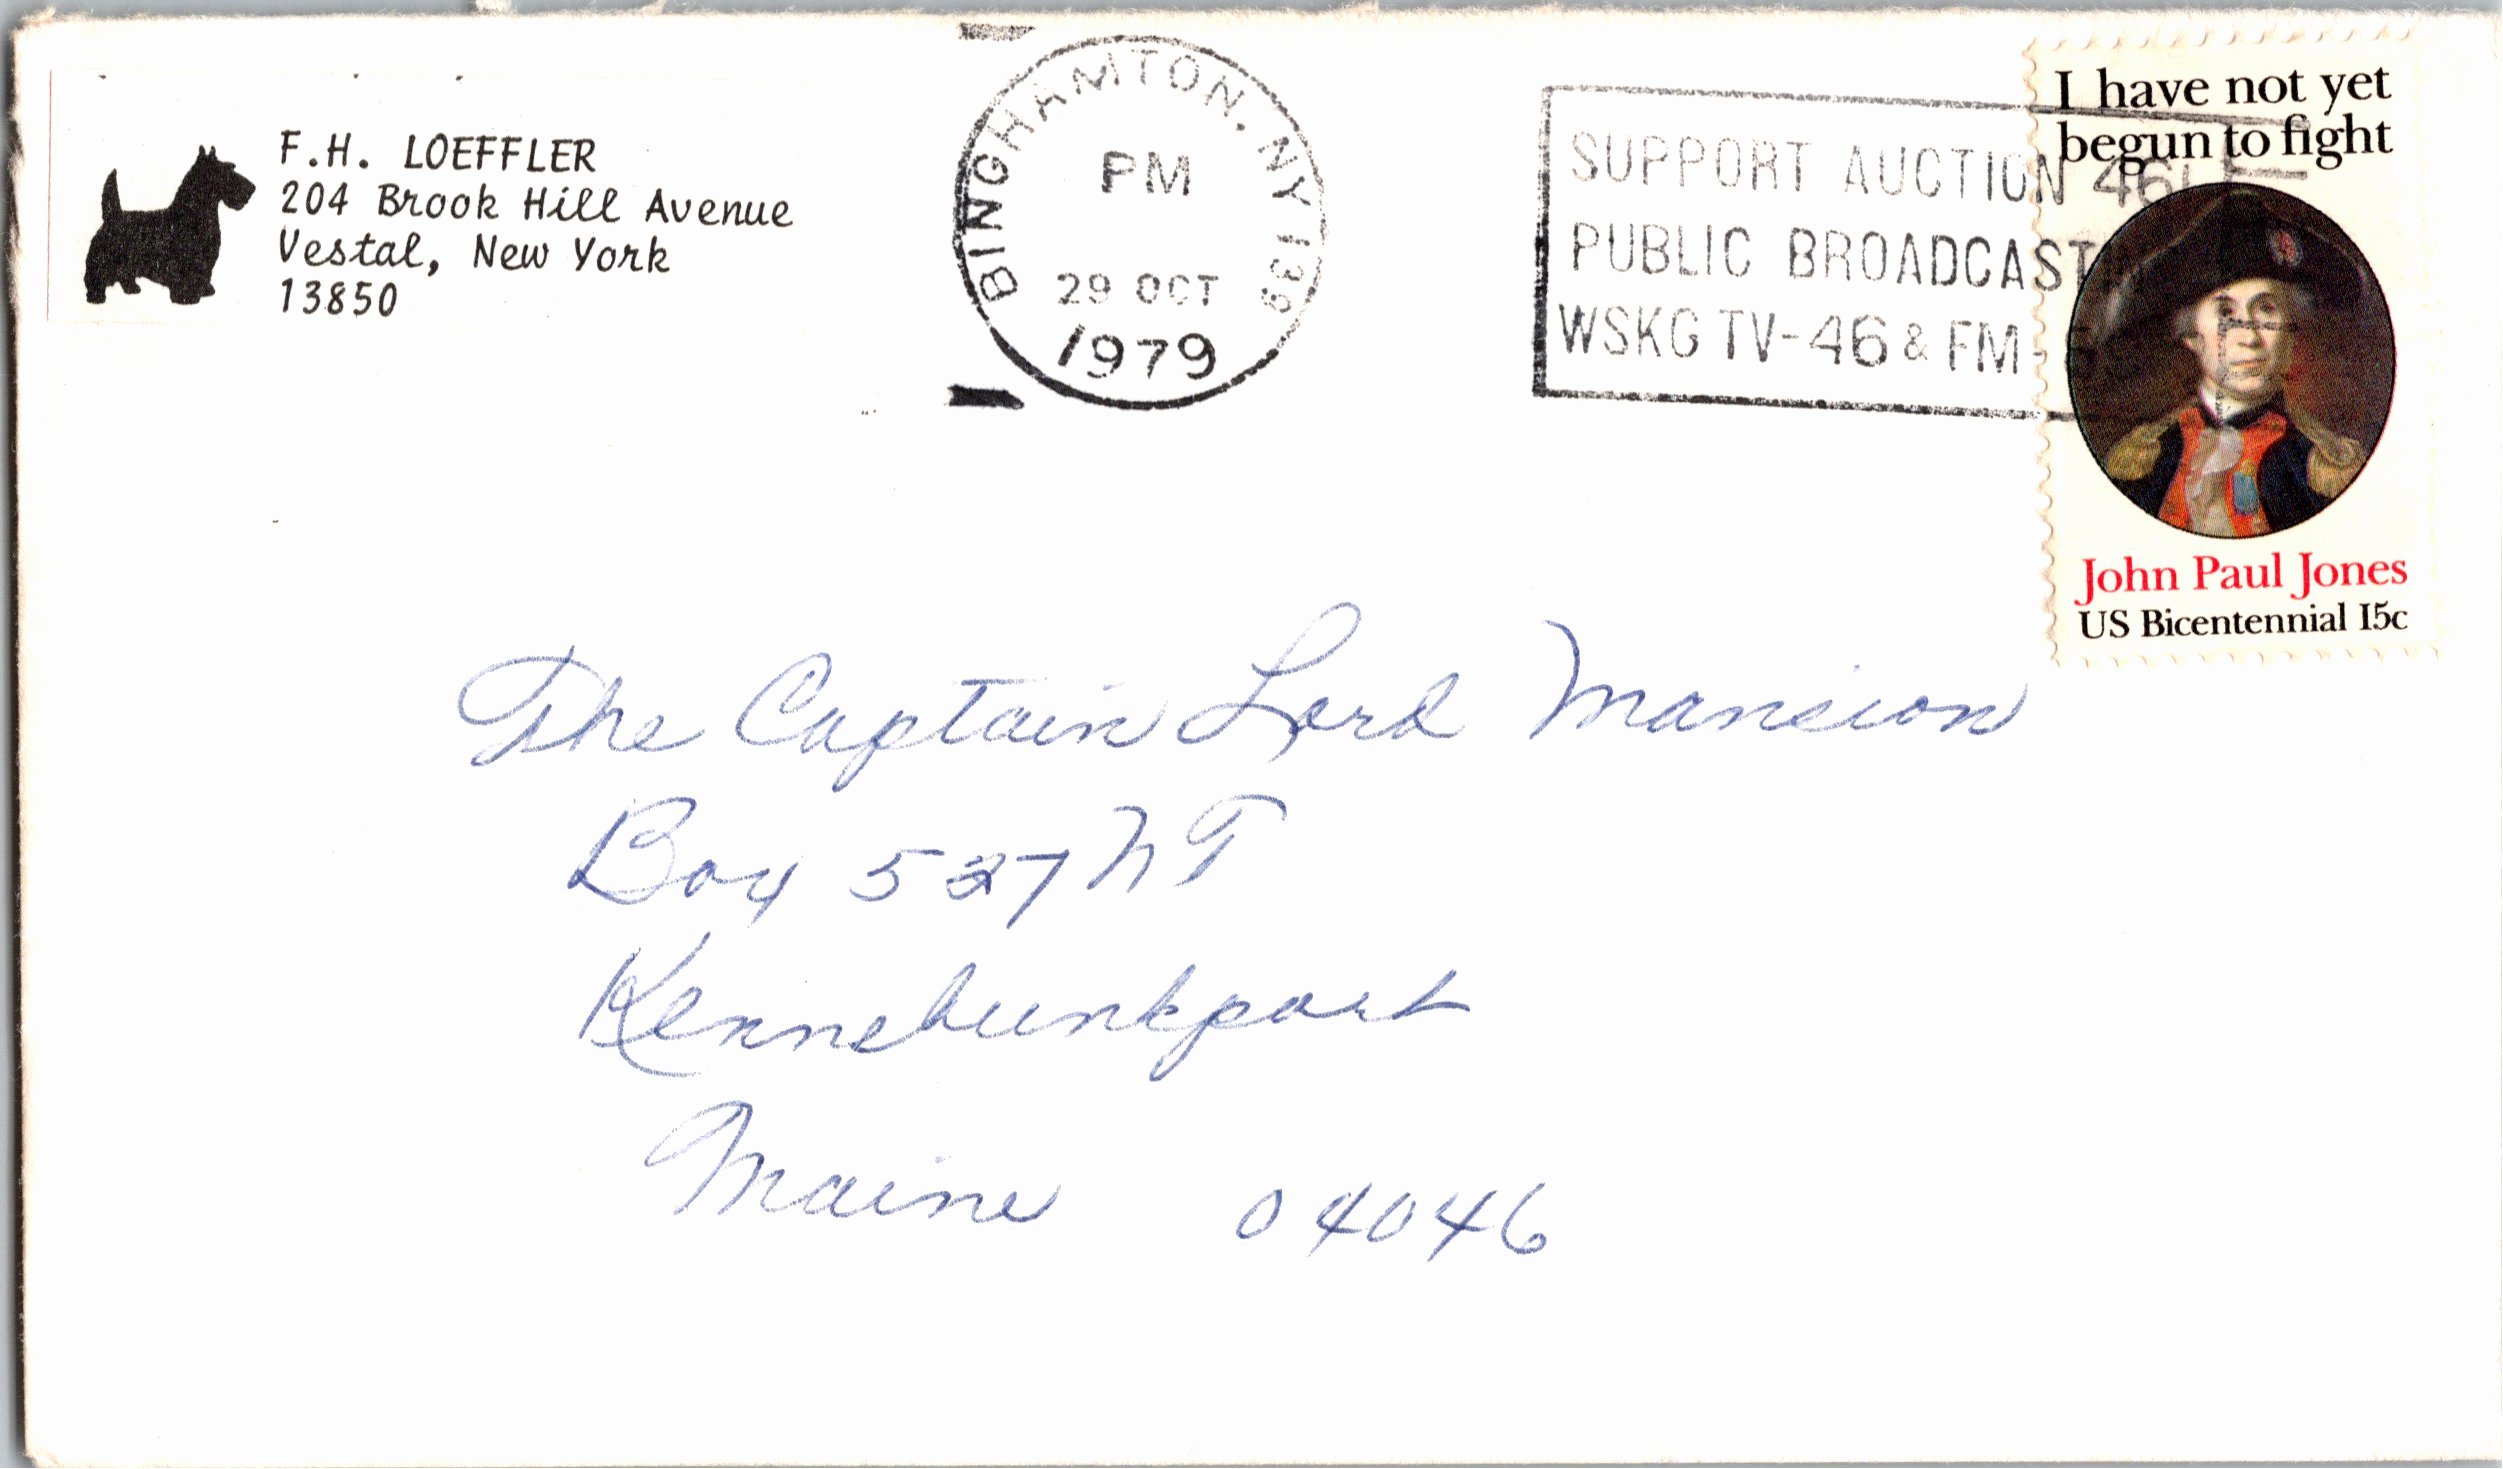 F.H. LOEFFLER
204 Brook Hill Avenue
Vestal, New York
13850
BINGHAMTON, NY 139
PM
29 OCT
1979
SUPPORT AUCTION 46
PUBLIC BROADCAST
WSKG TV-46 & FM-
I have not yet
begun to fight
John Paul Jones
US Bicentennial 15c
The Captain Lord Mansion
Box 527 NT
Kennebunkport
Maine 04046